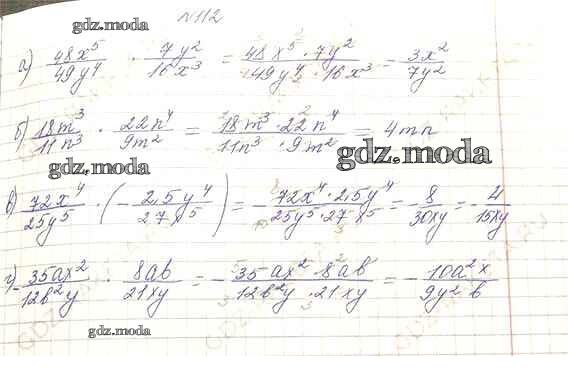 №112
gdz.moda
а) 48x⁵/49y⁴ · 7y²/16x³ = 48x⁵·7y²/49y⁴·16x³ = 3x²/7y²
б) 18m³/11n³ · 22n⁴/9m² = 18m³·22n⁴/11n³·9m² = 4mn
gdz.moda
gdz.moda
в) 72x⁴/25y⁵ · (-2,5y⁴/27x⁵) = -72x⁴·2,5y⁴/25y⁵·27x⁵ = -8/30xy = -4/15xy
г) -35ax²/12b²y · 8ab/21xy = -35ax²·8ab/12b²y·21xy = -10a²x/9y²b
gdz.moda